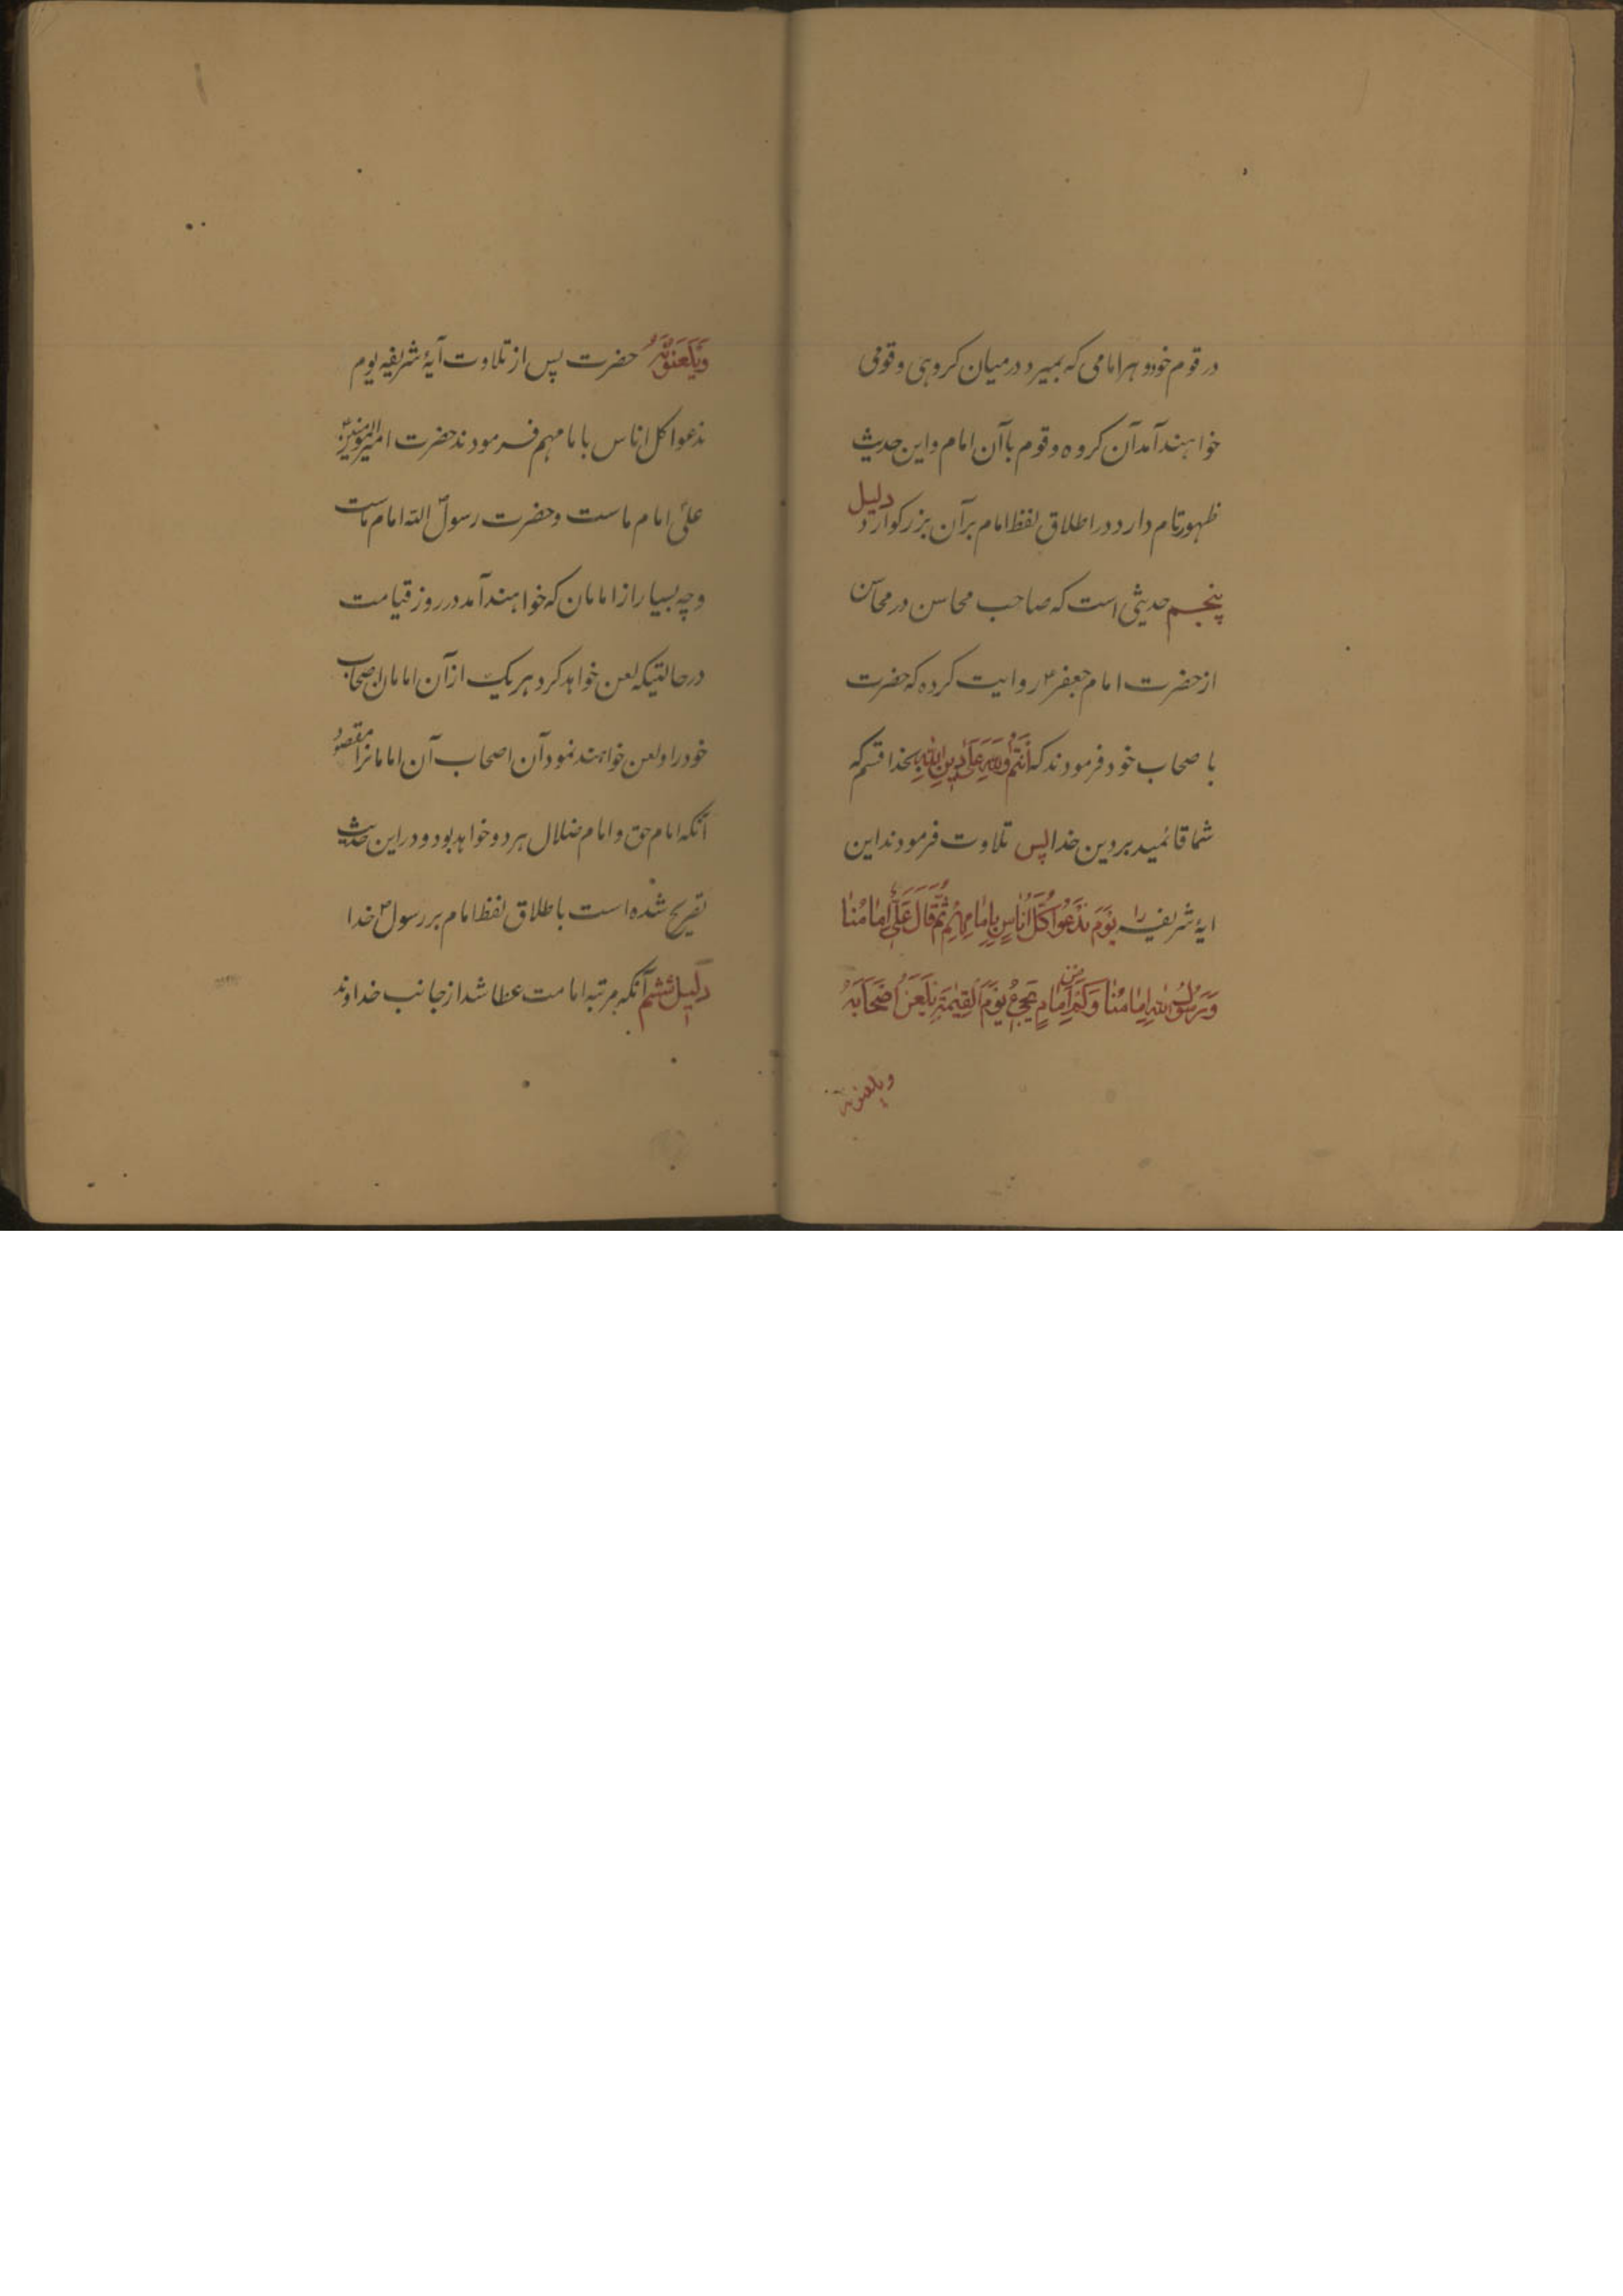 در قوم خود و هر امامی که بمیرد در میان کروهی و قومی
خواهند آمد آن کروه و قوم با آن امام و این حدیث
ظهور تام دارد در اطلاق لفظ امام بر آن بزرکوار دلیل
پنجم حدیثی است که صاحب محاسن در محاسن
از حضرت امام جعفر ع روایت کرده که حضرت
با صحاب خود فرمودند که أَنْتُمْ وَاللهِ عَلَى دِينِ اللهِ بخدا قسم که
شما قائمید بر دین خدا پس تلاوت فرمودند این
ایهٔ شریفه را يَوْمَ نَدْعُوا كُلَّ أُنَاسٍ بِإِمَامِهِمْ ثُمَّ قَالَ عَلِيٌّ إِمَامُنَا
وَرَسُولُ اللهِ إِمَامُنَا وَكَمْ مِنْ إِمَامٍ يَجِيءُ يَوْمَ الْقِيمَةِ يَلْعَنُ أَصْحَابَهُ
ویلعنونه
وَيَلْعَنُونَهُ حضرت پس از تلاوت آیهٔ شریفه یوم
ندعوا کل اناس بامامهم فرمودند حضرت امیرالمؤمنین
علی امام ماست و حضرت رسول الله امام ماست
و چه بسیار از امامان که خواهند آمد در روز قیامت
در حالتیکه لعن خواهد کرد هر یک از آن امامان اصحاب
خود را و لعن خواهند نمود آن اصحاب آن امامانرا مقصود
آنکه امام حق و امام ضلال هر دو خواهد بود و در این حدیث
تصریح شده است باطلاق لفظ امام بر رسول ص خدا
دلیل ششم آنکه مرتبه امامت عطا شد از جانب خداوند